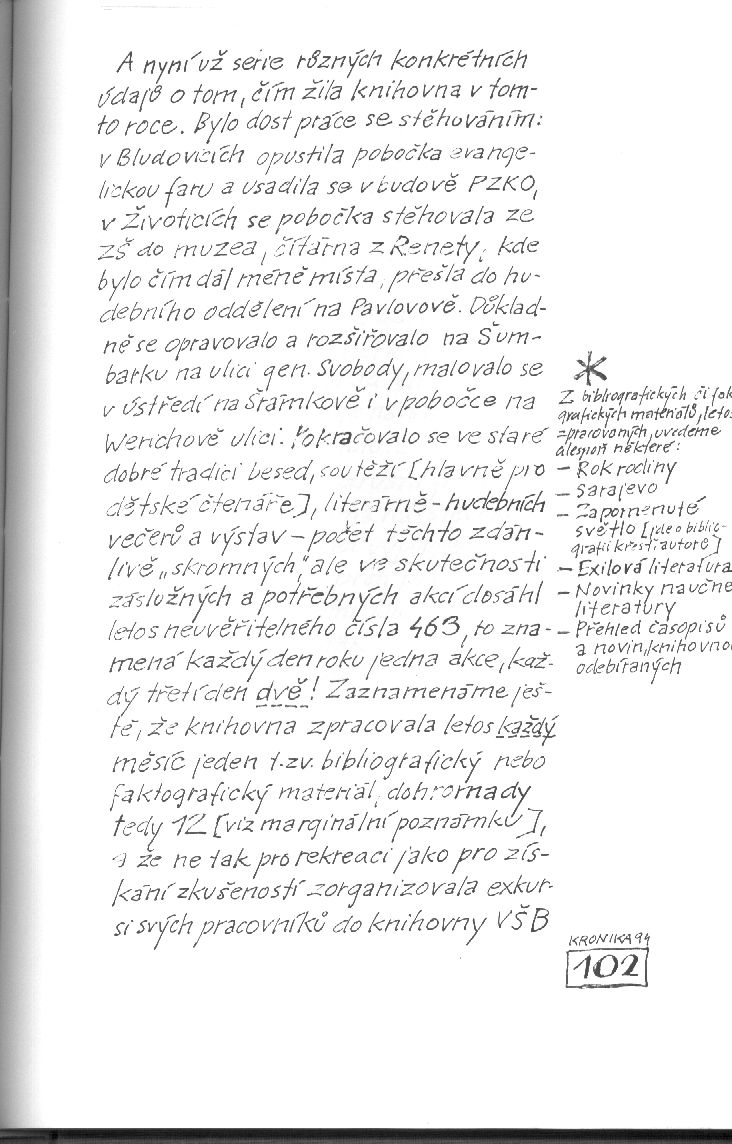 A nyní už serie různých konkrétních
údajů o tom, čím žila knihovna v tom-
to roce. Bylo dost práce se stěhováním:
v Bludovicích opustila pobočka evange-
lickou faru a usadila se v budově PZKO,
v Životicích se pobočka stěhovala ze
ZŠ do muzea, čítárna z Renety, kde
bylo čím dál méně místa, přešla do hu-
debního oddělení na Pavlovově. Důklad-
ně se opravovalo a rozšiřovalo na Šum-
barku na ulici gen. Svobody, malovalo se
v ústředí na Šrámkově i v pobočce na
Werichově ulici. Pokračovalo se ve staré
dobré tradici besed, soutěží [hlavně pro
dětské čtenáře], literárně-hudebních
večerů a výstav – počet těchto zdán-
livě „skromných," ale ve skutečnosti
záslužných a potřebných akcí dosáhl
letos neuvěřitelného čísla 463, to zna-
mená každý den roku jedna akce, kaž-
dý třetí den dvě! Zaznamenáme ješ-
tě, že knihovna zpracovala letos každý
měsíc jeden t.zv. bibliografický nebo
faktografický materiál, dohromady
tedy 12 [viz marginální poznámku],
a že ne tak pro rekreaci jako pro zís-
kání zkušeností zorganizovala exkur-
si svých pracovníků do knihovny VŠB
*
Z bibliografických či fak
grafických materiálů, letos
zpracovaných, uvedeme
alespoň některé:
– Rok rodiny
– Sarajevo
– Zapomenuté
světlo [jde o biblio-
grafii křesť. autorů]
– Exilová literatura
– Novinky naučné
literatury
– Přehled časopisů
a novin, knihovno
odebíraných
KRONIKA 94
102